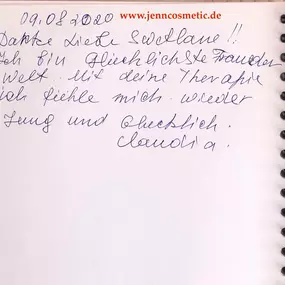 09.08 2020 www.jenncosmetic.de
Dankke Liebe Swetlane!!
Ich bin Glücklichste Frau der
Welt. Mit deine Therapie
ich fiehle mich wieder
Jung und Glücklich.
Claudia.